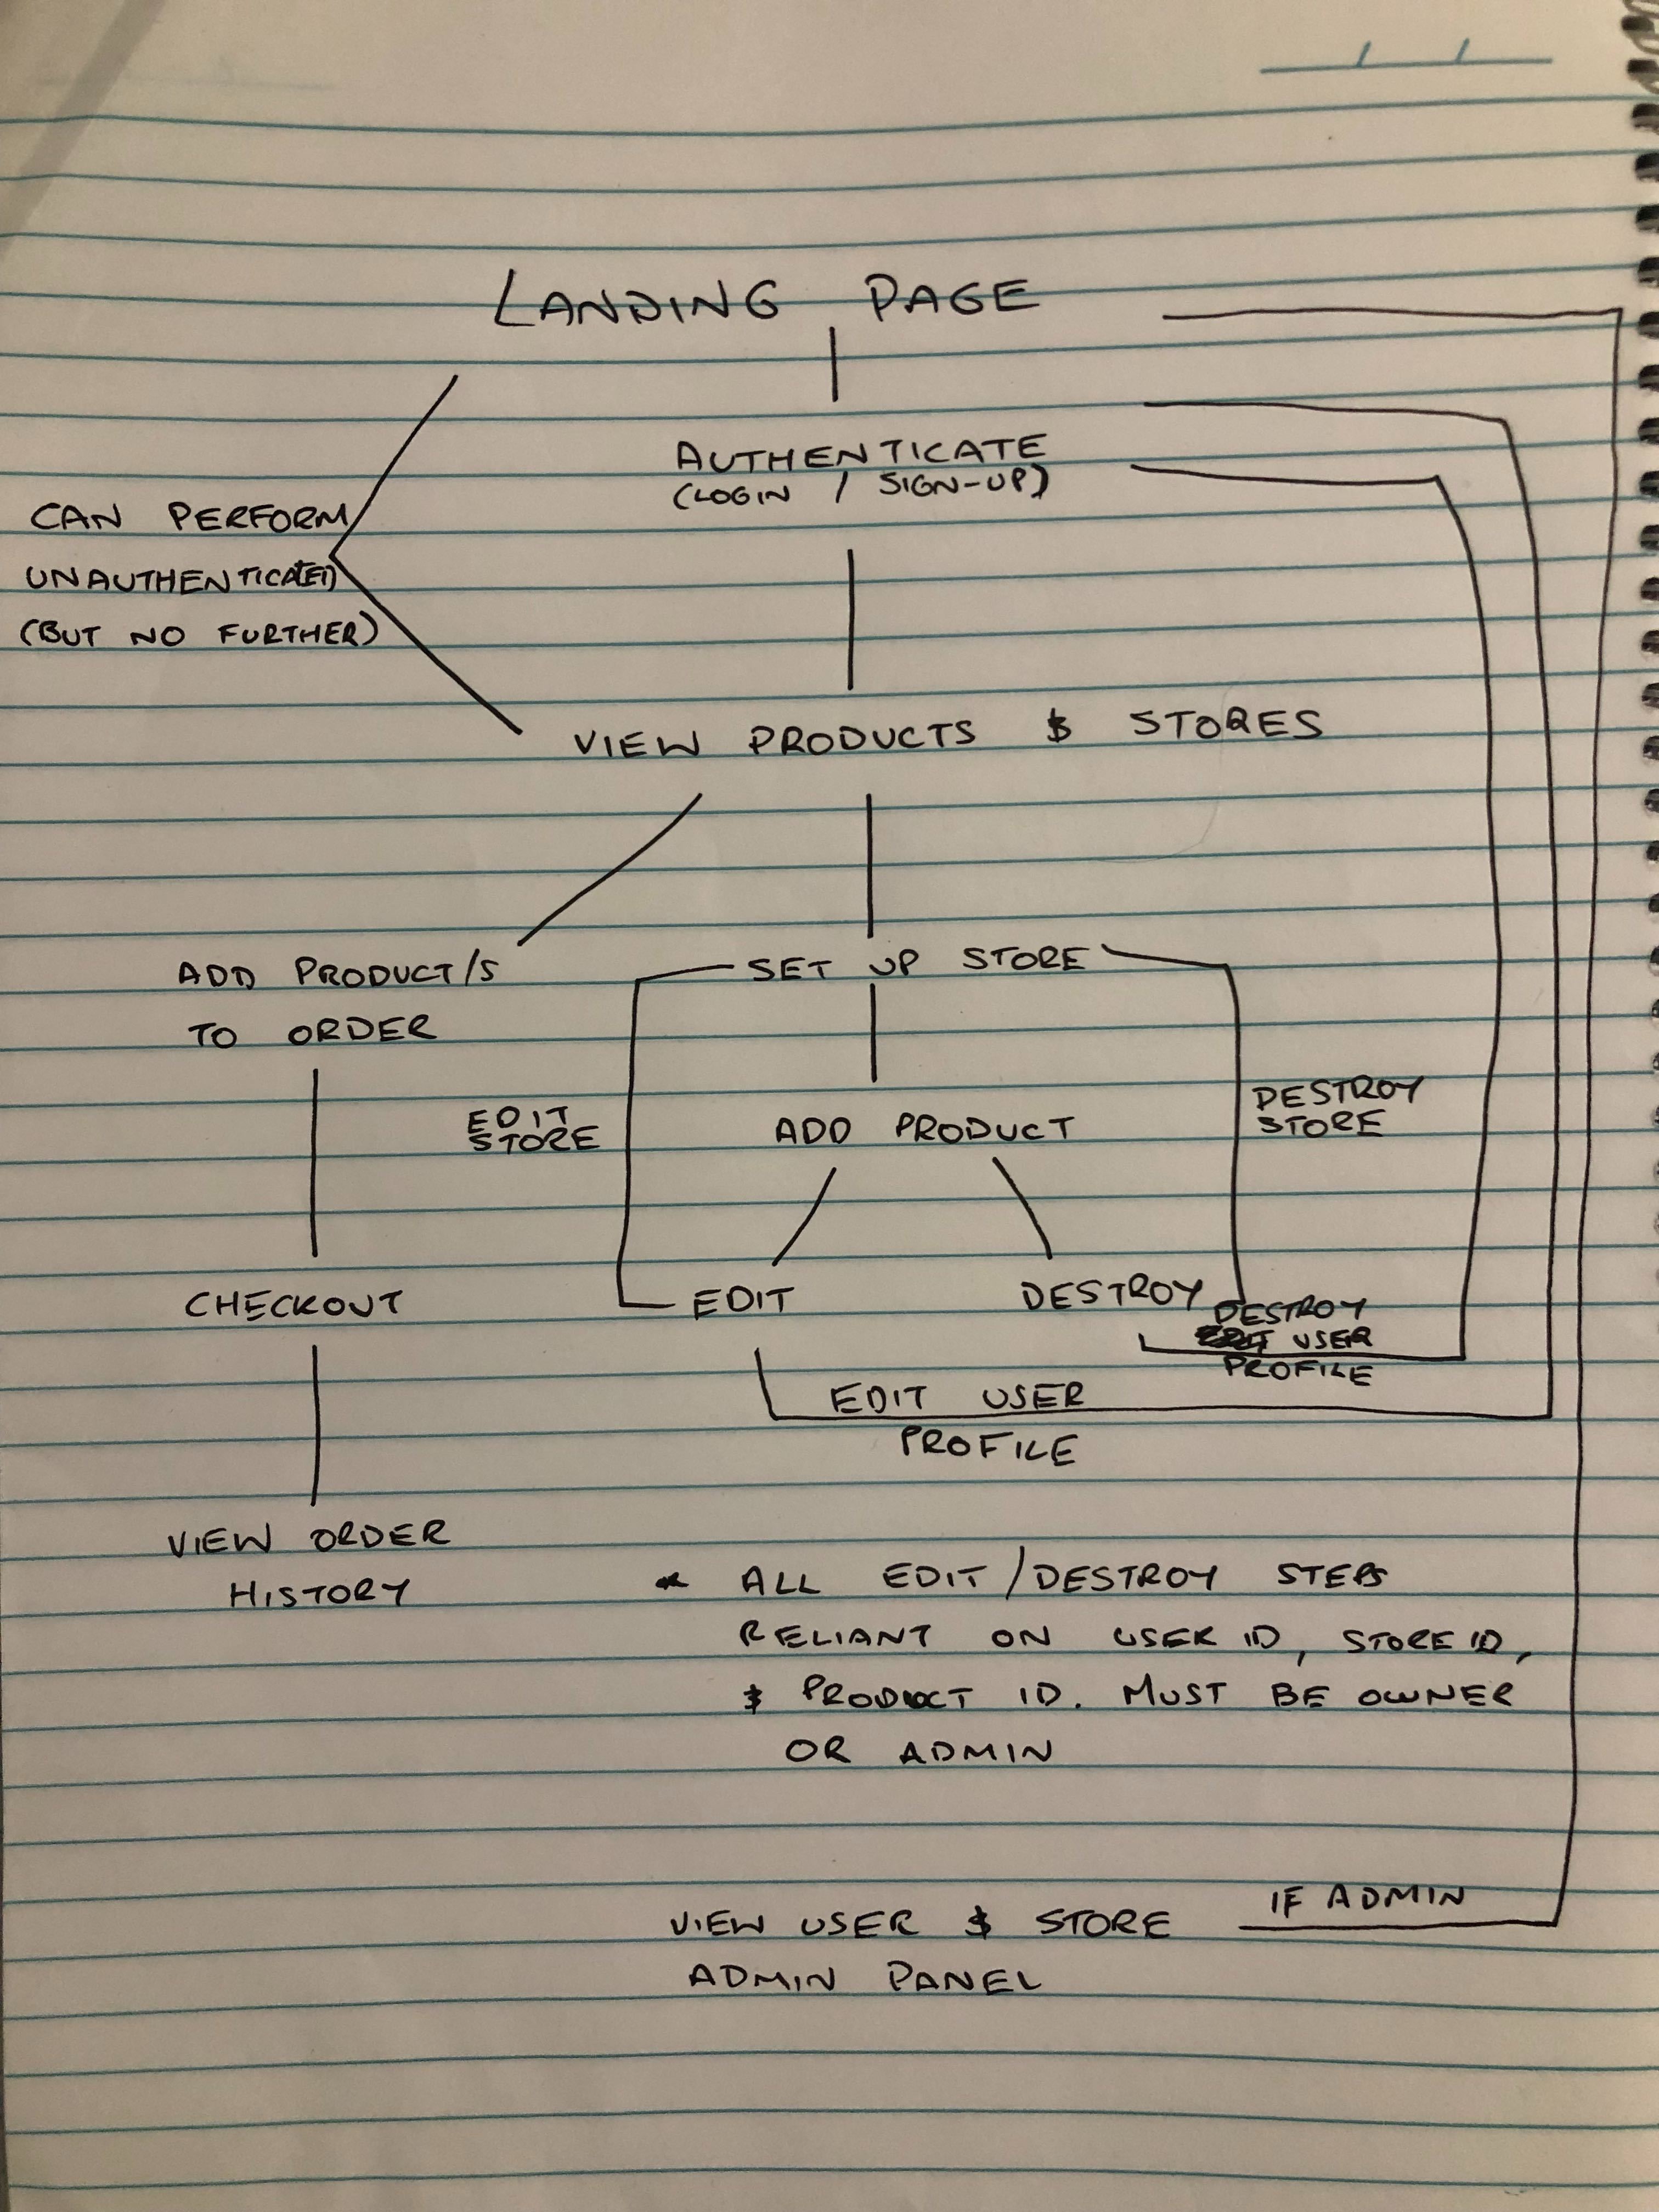 LANDING PAGE
AUTHENTICATE
(LOGIN / SIGN-UP)
CAN PERFORM
UNAUTHENTICATED
(BUT NO FURTHER)
VIEW PRODUCTS & STORES
ADD PRODUCT/S
TO ORDER
SET UP STORE
EDIT
STORE
ADD PRODUCT
DESTROY
STORE
CHECKOUT
EDIT
DESTROY
DESTROY
USER
PROFILE
EDIT USER
PROFILE
VIEW ORDER
HISTORY
* ALL EDIT/DESTROY STEPS
RELIANT ON USER ID, STORE ID,
& PRODUCT ID. MUST BE OWNER
OR ADMIN
IF ADMIN
VIEW USER & STORE
ADMIN PANEL